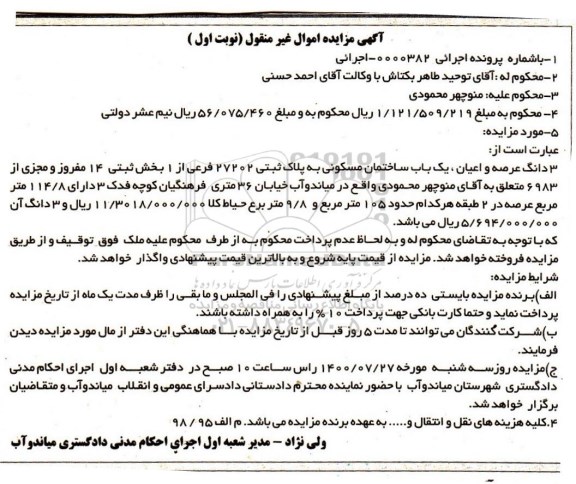 آگهی مزایده اموال غیر منقول (نوبت اول )
۱-باشماره پرونده اجرائی ۰۰۰۰۳۸۲-اجرائی
۲-محکوم له :آقای توحید طاهر بکتاش با وکالت آقای احمد حسنی
۳-محکوم علیه: منوچهر محمودی
۴- محکوم به مبلغ ۱/۱۲۱/۵۰۹/۲۱۹ ریال محکوم به و مبلغ ۵۶/۰۷۵/۴۶۰ ریال نیم عشر دولتی
۵-مورد مزایده:
عبارت است از:
۳ دانگ عرصه و اعیان ، یک باب ساختمان مسکونی به پلاک ثبتی ۲۷۲۰۲ فرعی از ۱ بخش ثبتی ۱۴ مفروز و مجزی از
۶۹۸۳ متعلق به آقای منوچهر محمودی واقع در میاندوآب خیابان ۳۶ متری فرهنگیان کوچه فدک ۳ دارای ۱۱۴/۸ متر
مربع عرصه در ۲ طبقه هرکدام حدود ۱۰۵ متر مربع و ۹/۸ متر برع حیاط کلا ۱۱/۳۰۱۸/۰۰۰/۰۰۰ ریال و ۳ دانگ آن
۵/۶۹۴/۰۰۰/۰۰۰ ریال می باشد.
که با توجه به تقاضای محکوم له و به لحاظ عدم پرداخت محکوم به از طرف محکوم علیه ملک فوق توقیف و از طریق
مزایده فروخته خواهد شد. مزایده از قیمت پایه شروع و به بالاترین قیمت پیشنهادی واگذار خواهد شد.
شرایط مزایده:
الف)برنده مزایده بایستی ده درصد از مبلغ پیشنهادی را فی المجلس و مابقی را ظرف مدت یک ماه از تاریخ مزایده
پرداخت نماید و حتما کارت بانکی جهت پرداخت ۱۰ % را به همراه داشته باشند.
ب)شرکت گنندگان می توانند تا مدت ۵ روز قبل از تاریخ مزایده با هماهنگی این دفتر از مال مورد مزایده دیدن
فرمایند.
ج)مزایده روز سه شنبه مورخه ۱۴۰۰/۰۷/۲۷ راس ساعت ۱۰ صبح در دفتر شعبه اول اجرای احکام مدنی
دادگستری شهرستان میاندوآب با حضور نماینده محترم دادستانی دادسرای عمومی و انقلاب میاندوآب و متقاضیان
برگزار خواهد شد.
۴.کلیه هزینه های نقل و انتقال و..... به عهده برنده مزایده می باشد. م الف ۹۵ / ۹۸
ولی نژاد - مدیر شعبه اول اجرای احکام مدنی دادگستری میاندوآب